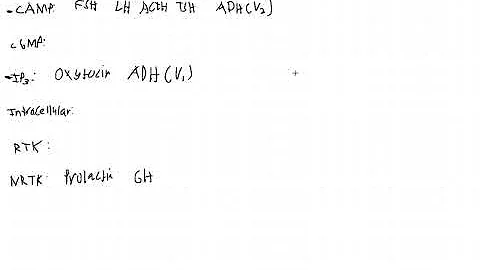 -cAMP: FSH LH ACTH TSH ADH(V₂)
cGMP:
-IP₃: Oxytocin ADH(V₁)
Intracellular:
RTK:
NRTK: Prolactin GH